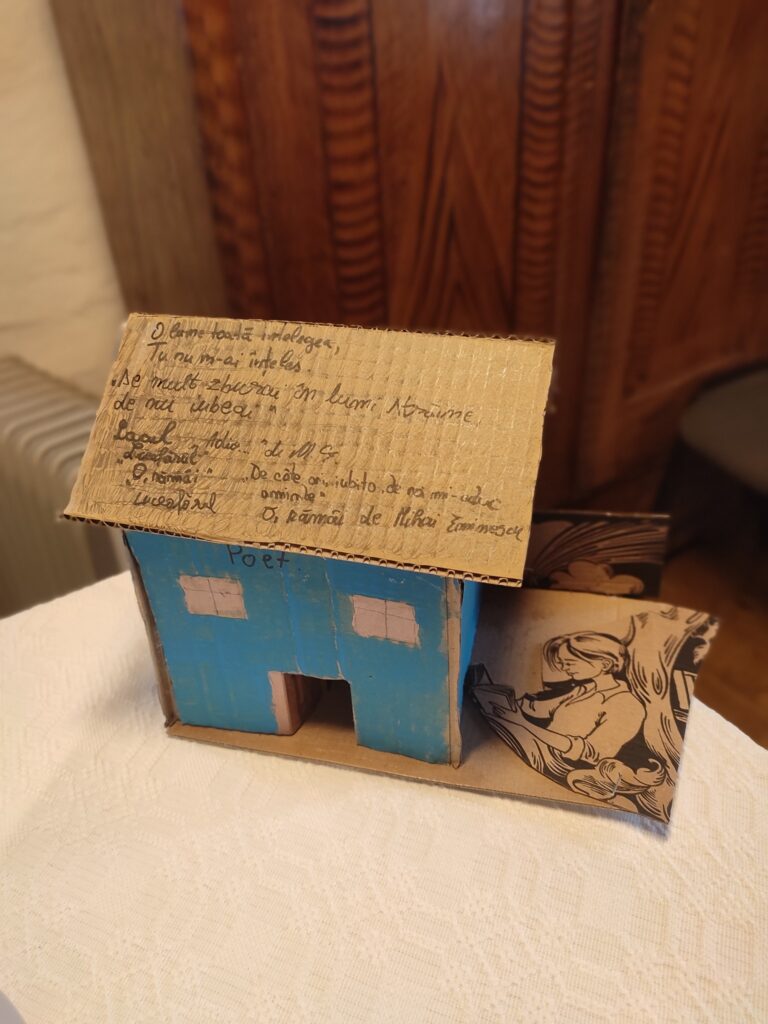 O lume toată înțelegea,
Tu nu m-ai înțeles.
„De mult zburai în lumi
de nu iubeai"
Lacul Adio... "de M
„Luceafărul"
„O, rămâi" „De câte ori, iubito, de noi mi-aduc
Luceafărul aminte"
O, rămâi de Mihai Eminescu
Poet